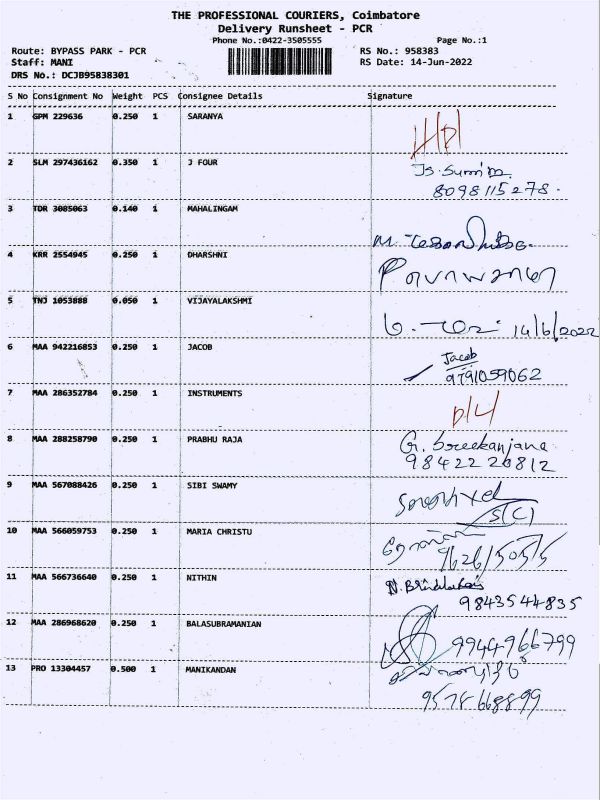 THE PROFESSIONAL COURIERS, Coimbatore
Delivery Runsheet - PCR
Phone No.:0422-3505555
Page No.:1
Route: BYPASS PARK - PCR
RS No.: 958383
Staff: MANI
RS Date: 14-Jun-2022
DRS No.: DCJB95838301
S No Consignment No Weight PCS Consignee Details Signature
1 GPM 229636 0.250 1 SARANYA
2 SLM 297436162 0.350 1 J FOUR
8098115278.
3 TDR 3005063 0.140 1 MAHALINGAM
4 KRR 2554945 0.250 1 DHARSHNI
5 TNJ 1053888 0.050 1 VIJAYALAKSHMI
14/6/2022
6 MAA 942216853 0.250 1 JACOB
Jacob
9791059062
7 MAA 286352784 0.250 1 INSTRUMENTS
8 MAA 288258790 0.250 1 PRABHU RAJA
G. Sreekanjana
98422 20812
9 MAA 567088426 0.250 1 SIBI SWAMY
10 MAA 566059753 0.250 1 MARIA CHRISTU
11 MAA 566736640 0.250 1 NITHIN
9843544835
12 MAA 286968620 0.250 1 BALASUBRAMANIAN
9944966799
13 PRO 13304457 0.500 1 MANIKANDAN
9578668899